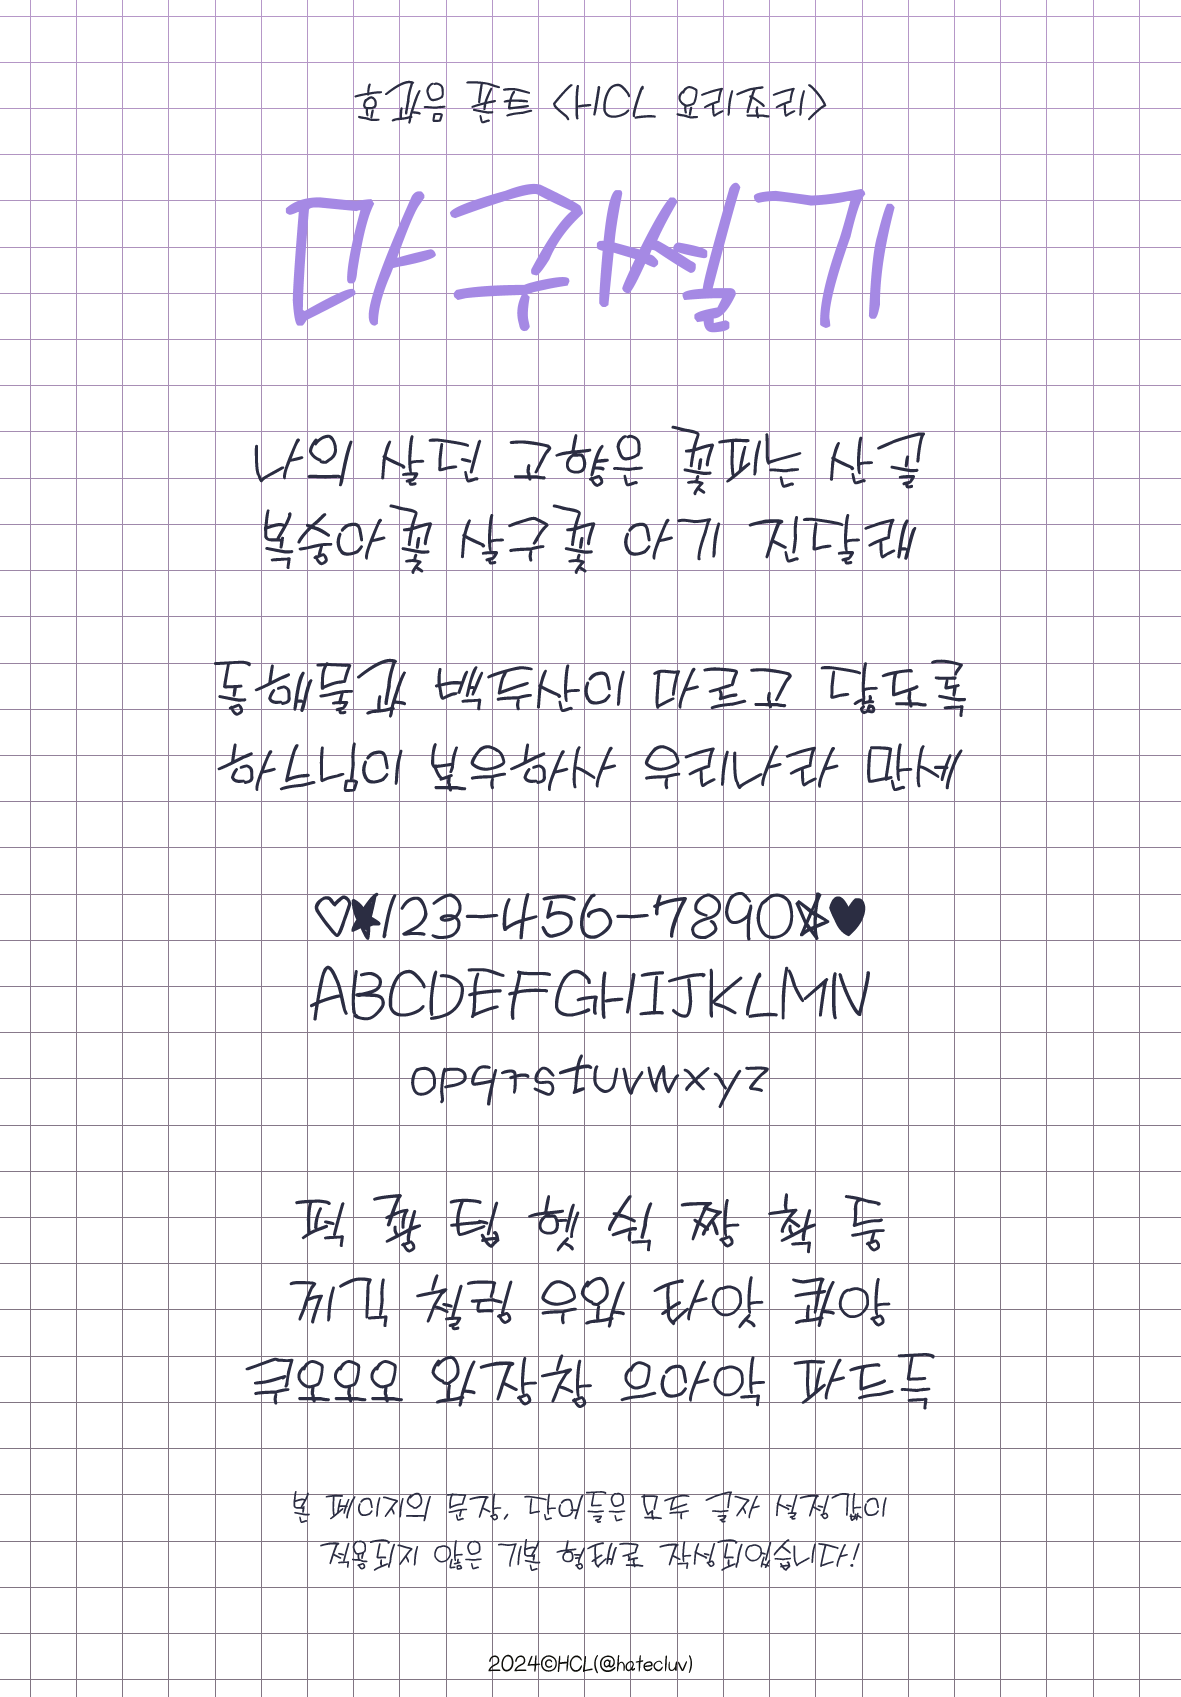 효과음 폰트 <HCL 요리조리>
마구씰기
나의 살던 고향은 꽃피는 산골
복숭아꽃 살구꽃 아기 진달래
동해물과 백두산이 마르고 닳도록
하느님이 보우하사 우리나라 만세
♡★123-456-7890☆♥
ABCDEFGHIJKLMN
opqrstuvwxyz
퍽 쾅 팁 헷 쉭 짱 촥 둥
끼긱 칠렁 우와 타앗 쿠아앙
쿠오오오 와장창 으아악 파드득
본 페이지의 문장, 단어들은 모두 글자 설정값이
적용되지 않은 기본 형태로 작성되었습니다!
2024©HCL(@hatecluv)